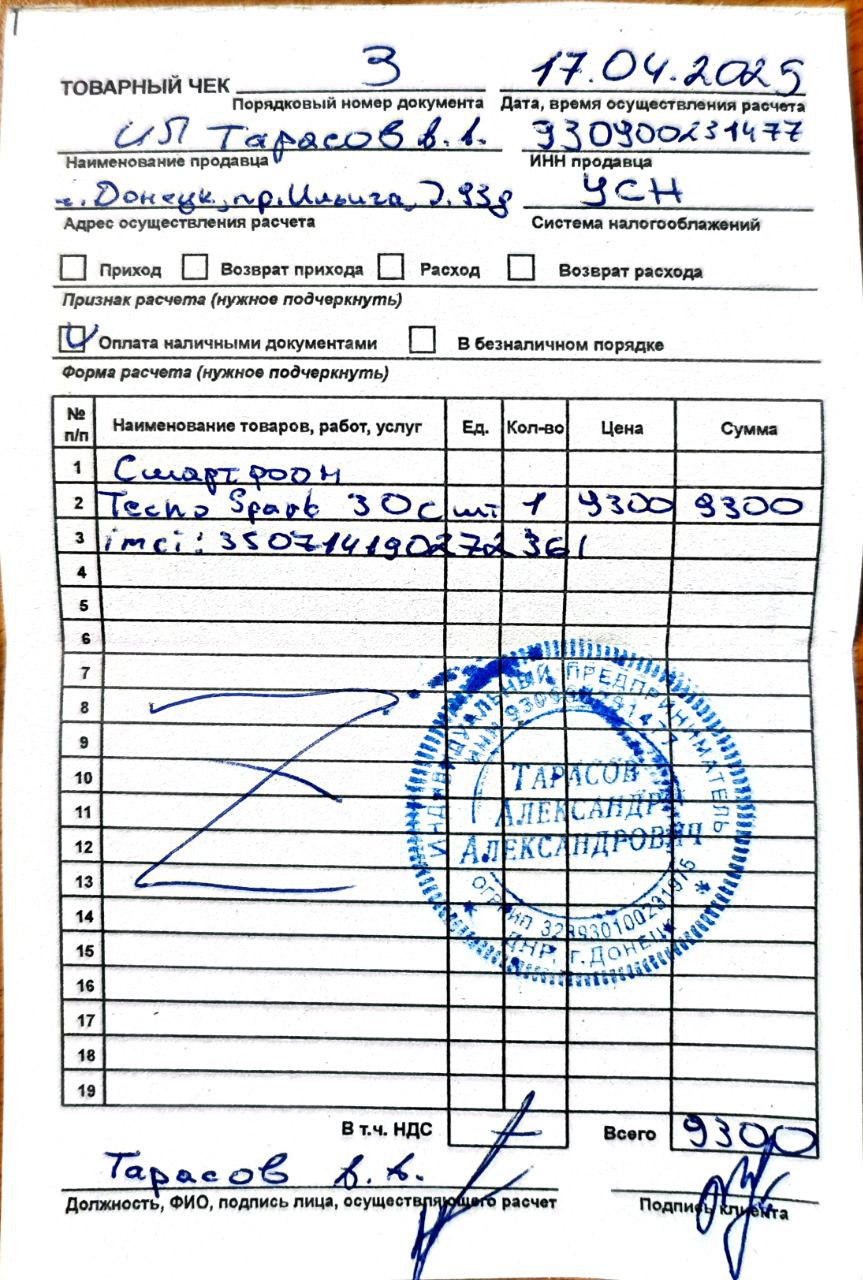 ТОВАРНЫЙ ЧЕК 3 17.04.2025
Порядковый номер документа Дата, время осуществления расчета
ИП Тарасов А.А. 930900231477
Наименование продавца ИНН продавца
г. Донецк, пр. Ильича, д. 93д УСН
Адрес осуществления расчета Система налогооблажений
Приход Возврат прихода Расход Возврат расхода
Признак расчета (нужное подчеркнуть)
Оплата наличными документами В безналичном порядке
Форма расчета (нужное подчеркнуть)
№ п/п Наименование товаров, работ, услуг Ед. Кол-во Цена Сумма
1 Смартфоон
2 Tecno Spark 30C шт 1 9300 9300
3 imei: 350714190272361
4
5
6
7
8
9
10
11
12
13
14
15
16
17
18
19
ИНДИВИДУАЛЬНЫЙ ПРЕДПРИНИМАТЕЛЬ
ИНН
ТАРАСОВ
АЛЕКСАНДР
АЛЕКСАНДРОВИЧ
ОГРНИП
ДНР, г. ДОНЕЦК
В т.ч. НДС — Всего 9300
Тарасов А.А.
Должность, ФИО, подпись лица, осуществляющего расчет Подпись клиента